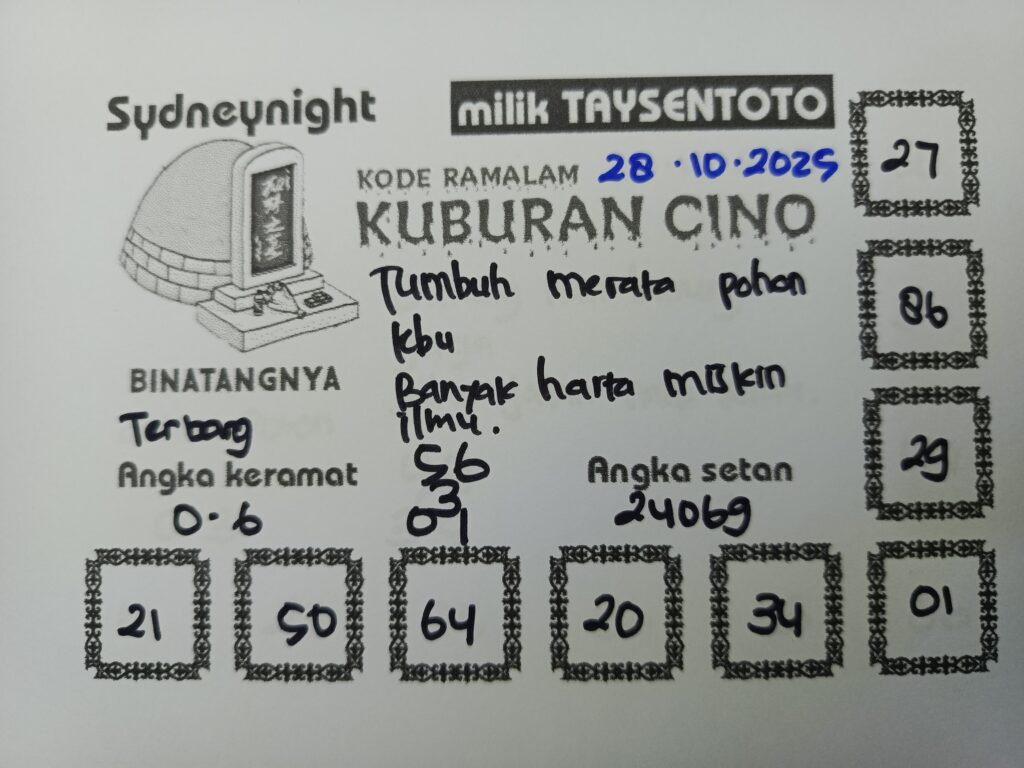 Sydneynight
milik TAYSENTOTO
KODE RAMALAM 28.10.2025
KUBURAN CINO
Tumbuh merata pohon
kbu
Banyak harta miskin
ilmu.
BINATANGNYA
Terbang
Angka keramat
0.6
56
3
01
Angka setan
24069
27
86
29
01
21
50
64
20
34